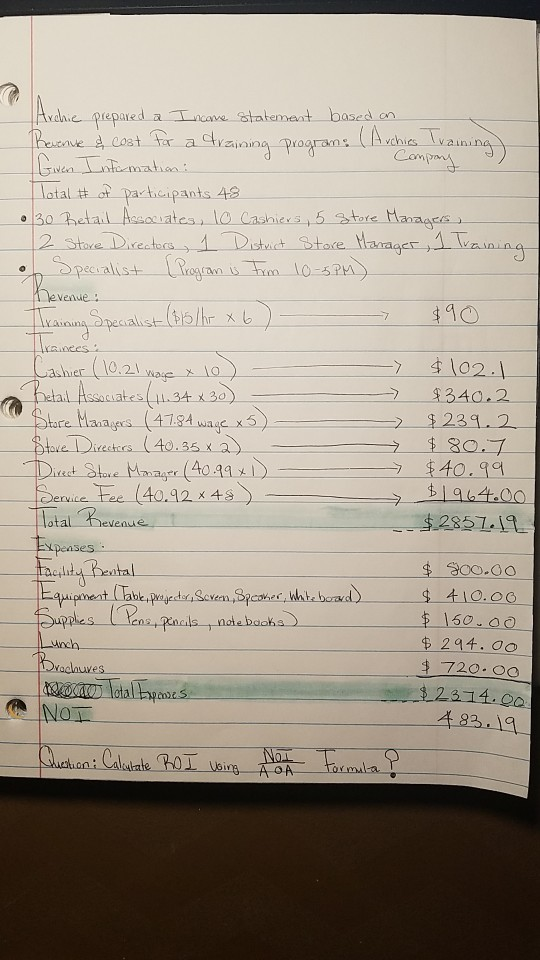 Archie prepared a Income statement based on
Revenue & cost for a training program: (Archies Training
Company)
Given Information:
Total # of participants 48
• 30 Retail Associates, 10 Cashiers, 5 Store Managers,
2 Store Directors, 1 District Store Manager, 1 Training
• Specialist [Program is Frm 10-5PM)
Revenue:
Training Specialist ($15/hr x 6) → $90
Trainees:
Cashier (10.21 wage x 10) → $102.1
Retail Associates (11.34 x 30) → $340.2
Store Managers (47.84 wage x 5) → $239.2
Store Directors (40.35 x 2) → $80.7
Direct Store Manager (40.99 x 1) → $40.99
Service Fee (40.92 x 48) → $1964.00
Total Revenue $2857.19
Expenses.
Facility Rental $800.00
Equipment (Table, projector, Screen, Speaker, White board) $410.00
Supplies (Pens, pencils, notebooks) $150.00
Lunch $294.00
Brochures $720.00
Total Expenses $2374.00
NOI 483.19
Question: Calculate ROI using NOI / AOA Formula?